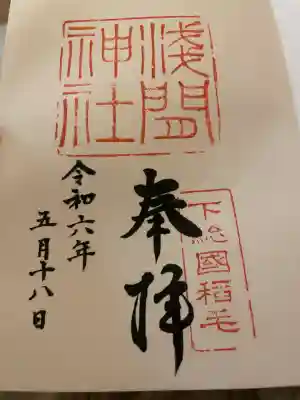 淺間
神社
奉拝
下総國稲毛
令和六年
五月十八日